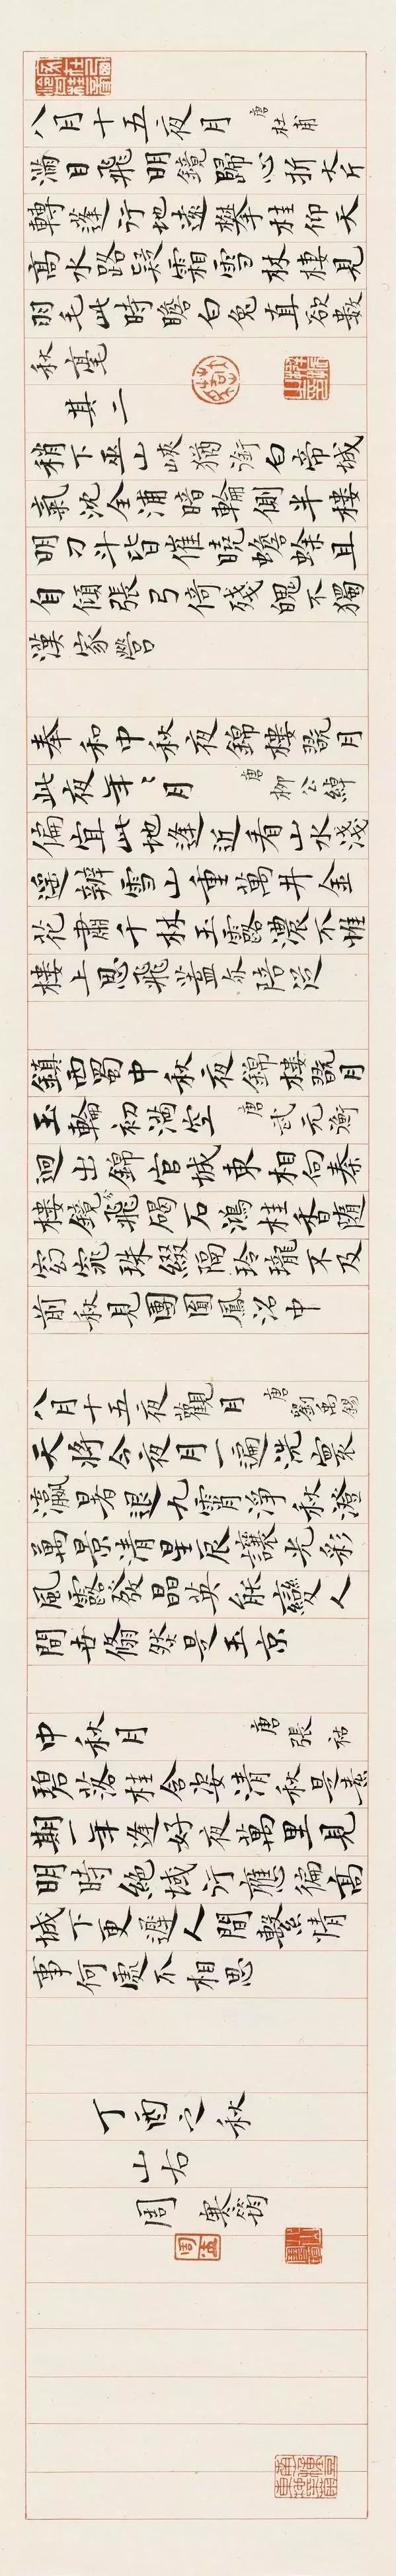 八月十五夜月 唐杜甫
滿目飛明鏡歸心折大斤
轉蓬行地遠攀桂仰天
高水路疑霜雪林棲見
羽毛此時瞻白兔直欲數
秋毫
其二
稍下巫山峽猶銜白帝城
氣沈全浦暗輪側半樓
明刁斗皆催曉蟾蜍且
自傾張弓倚殘魄不獨
漢家營
奉和中秋夜錦樓翫月
此夜年々月 唐柳公綽
偏宜此地逢近看山水淺
遥辨雪山重萬井金
花肅千林玉露濃不惟
樓上思飛蓋亦陪從
鎮西蜀中秋夜錦樓翫月
玉輪初滿空 唐武元衡
迥出錦官城東相向秦
樓鏡分飛碣石鴻桂香隨
窈窕珠綴隔玲瓏不及
前秋見團圓鳳沼中
八月十五夜觀月 唐劉禹錫
天將今夜月一遍洗寰
瀛暑退九霄淨秋澄
萬景清星辰讓光彩
風露發晶英能變人
間世翛然是玉京
中秋月 唐張祜
碧落桂含姿清秋是素
期一年逢好夜萬里見
明時絕域行應徧高
城下更遲人間繫情
事何處不相思
丁酉之秋
山右
周寒筠